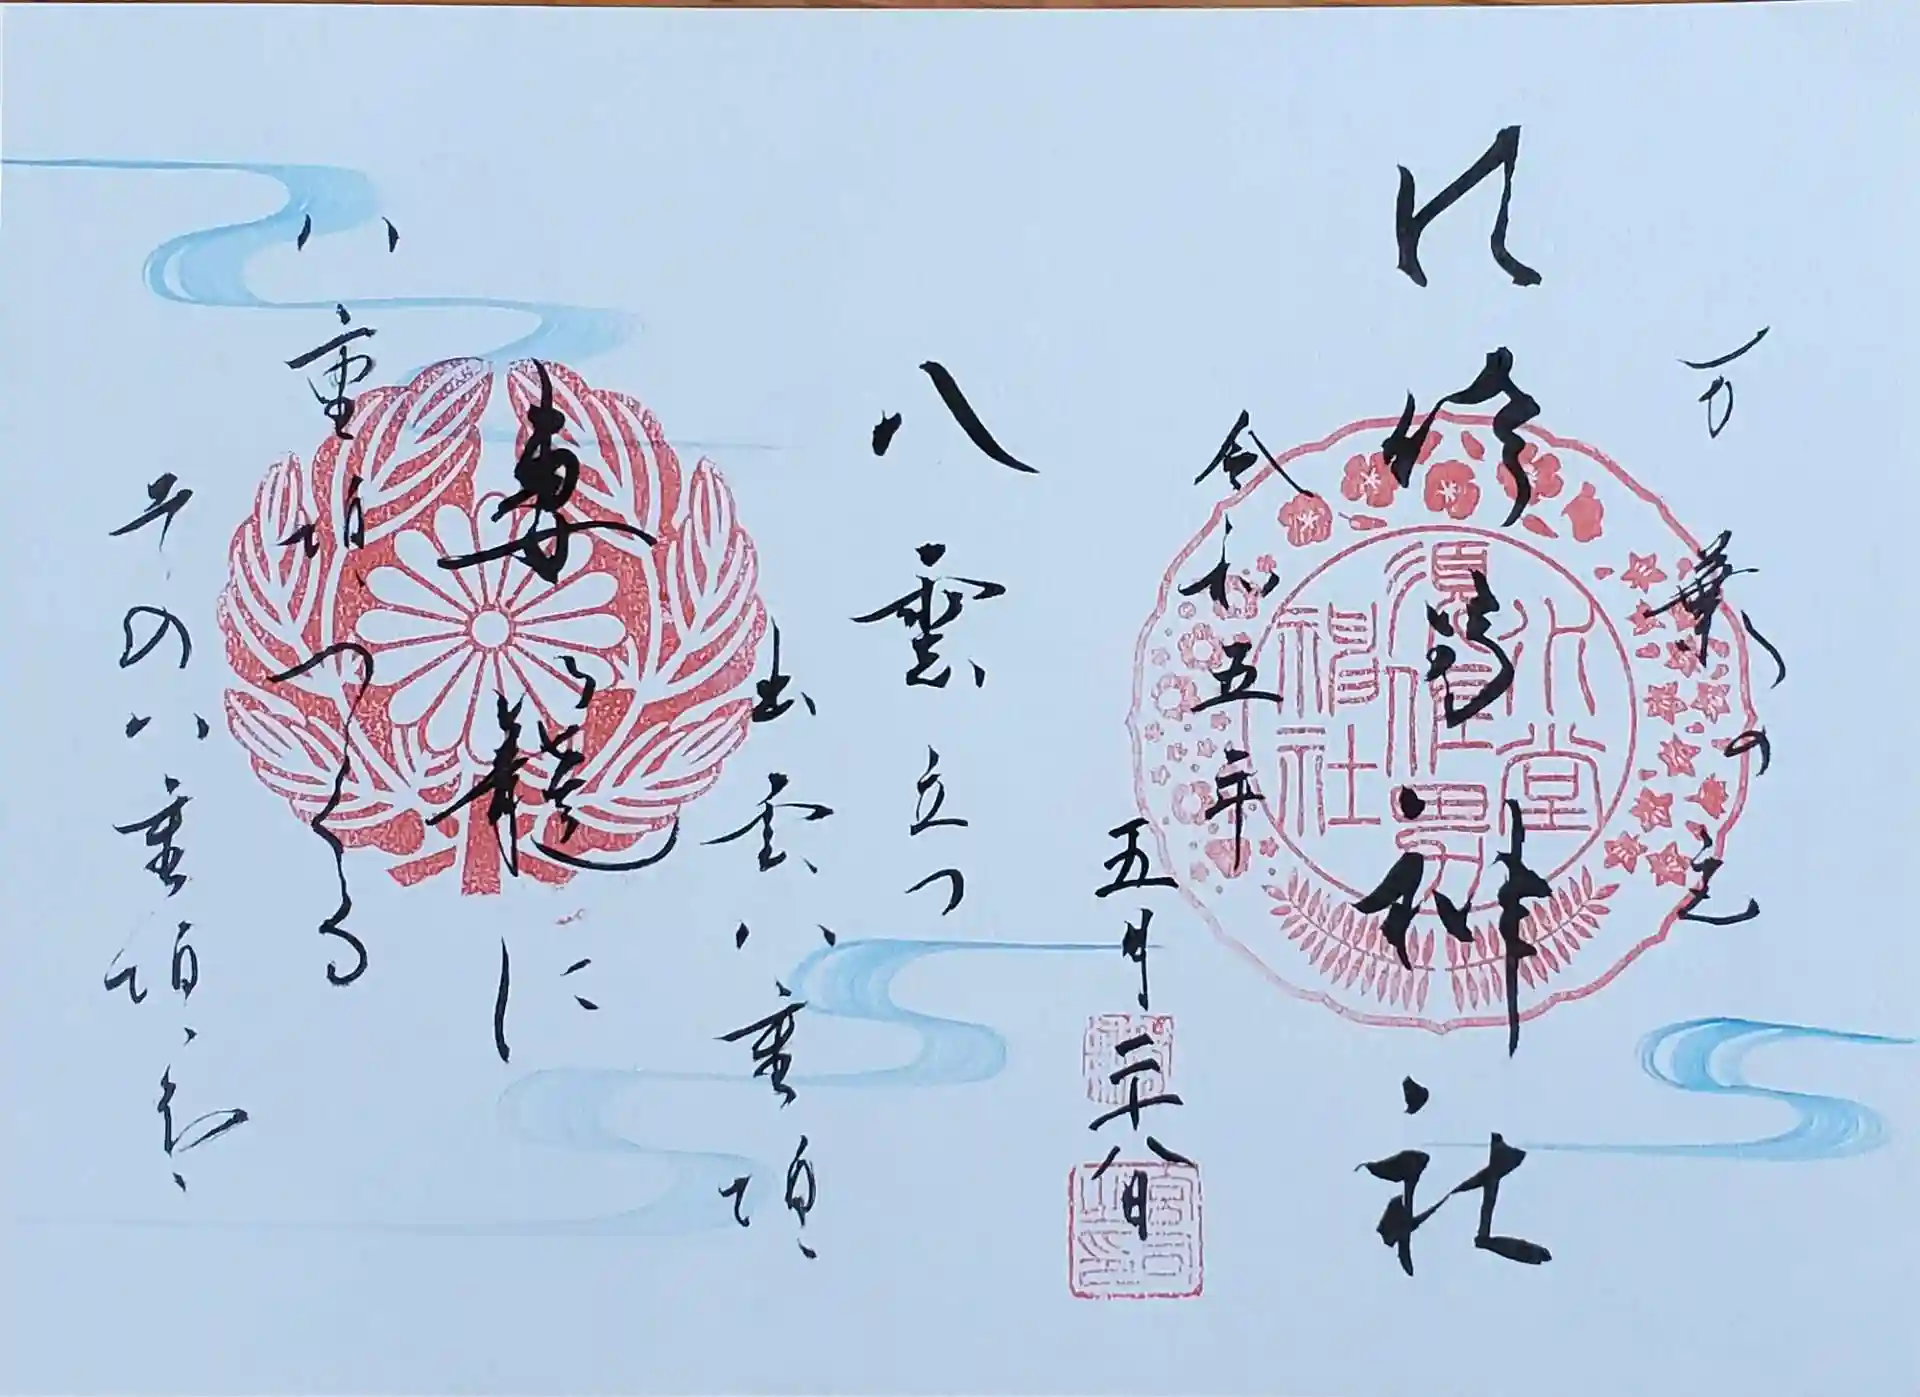 万葉の
神社
須佐男
神社
令和五年
五月二十八日
宮司
之印
八雲立つ
出雲八重垣
妻籠に
八重垣つくる
その八重垣を